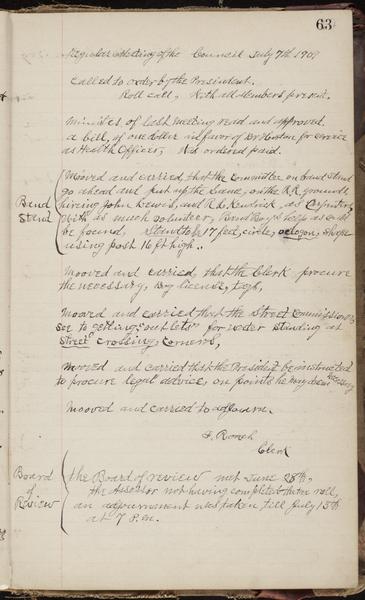 63
Regular Meeting of the Council July 7th 190
called to order by the President.
Roll call, With all members present.
Minutes of last meeting read and approved.
a bill, of one dollar in favor of Dr Huston for service
as Health Officer, Was ordered paid.
Mooved and carried that the committee on band stand
go ahead and put up the Same, on the R.R. grounds
hireing John Lewis, and R.C. Kendrick, as carpenters,
Band Stand
with as much volunteer, Band Boys help as could
be found, Stand to be 17 feet, circle, octogon, shape
using post 16 ft high.
Mooved and carried, that the Clerk procure
the necessary, Dog licence, tags,
Mooved and carried that the Street commissioner,
see to getting "outlets" for water standing at
Street crossing, corners,
Mooved and carried that the President be instructed
to procure legal advice, on points he may deem necessary
Mooved and carried to adjourn.
Clerk
Board of Review
the Board of review met June 28th,
the Assessor not having completed the roll,
an adjournment was taken till July 13th
at 7 P.M.